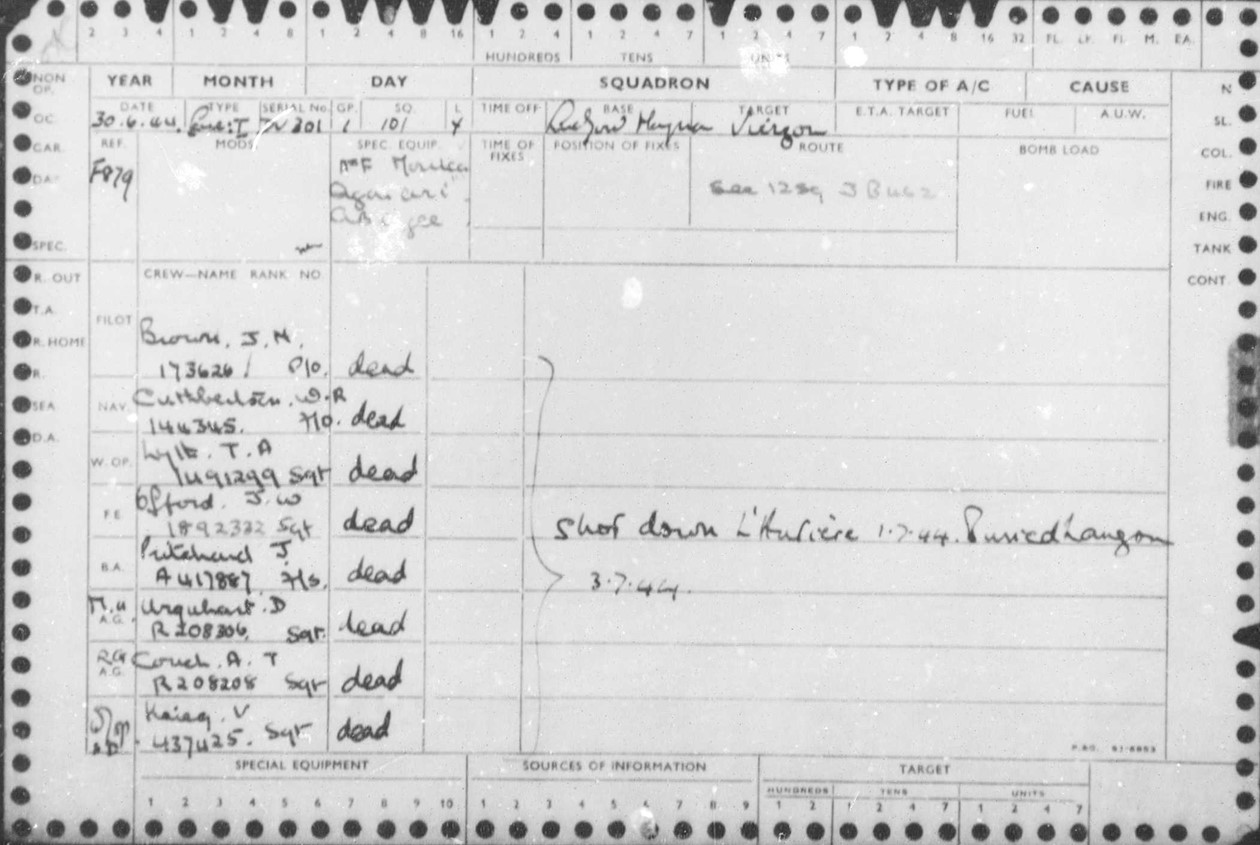 2 3 4 1 2 4 8 1 2 4 8 16 1 2 4 7 1 2 4 7 1 2 4 7 1 2 4 8 16 32 FL. LT. FI. M. EA.
HUNDREDS TENS UNITS
NON OP. YEAR MONTH DAY SQUADRON TYPE OF A/C CAUSE N
DATE TYPE SERIAL No. GP. SQ. L TIME OFF BASE TARGET E.T.A. TARGET FUEL A.U.W.
OC. 30.6.44. 1 101 Ludford Magna Vierzon SL.
CAR. REF. MODS SPEC. EQUIP. TIME OF FIXES POSITION OF FIXES ROUTE BOMB LOAD COL.
DA F879 Monica see 12 Sq FIRE
ENG.
SPEC. TANK
R. OUT CREW—NAME RANK NO. CONT.
T.A.
R. HOME PILOT Brown. J. H.
R. 173626 P/O. dead
SEA NAV Cuthbertson. W. R
144345. F/O. dead
D.A. Lyth. T. A
W. OP. 1491299 Sgt dead
Offord. J. W
F.E 1892332 Sgt dead
Shot down L'Huriere 1.7.44. Buried Langon
Pritchard J.
B.A. A417887 F/S. dead
3.7.44.
M.U A.G. Urquhart. D
R208306. Sgt. dead
RG A.G. Couch. A. T
R208208 Sgt dead
V
437425. Sgt dead
SPECIAL EQUIPMENT SOURCES OF INFORMATION TARGET
HUNDREDS TENS UNITS
1 2 3 4 5 6 7 8 9 10 1 2 3 4 5 6 7 8 9 1 2 1 2 4 7 1 2 4 7